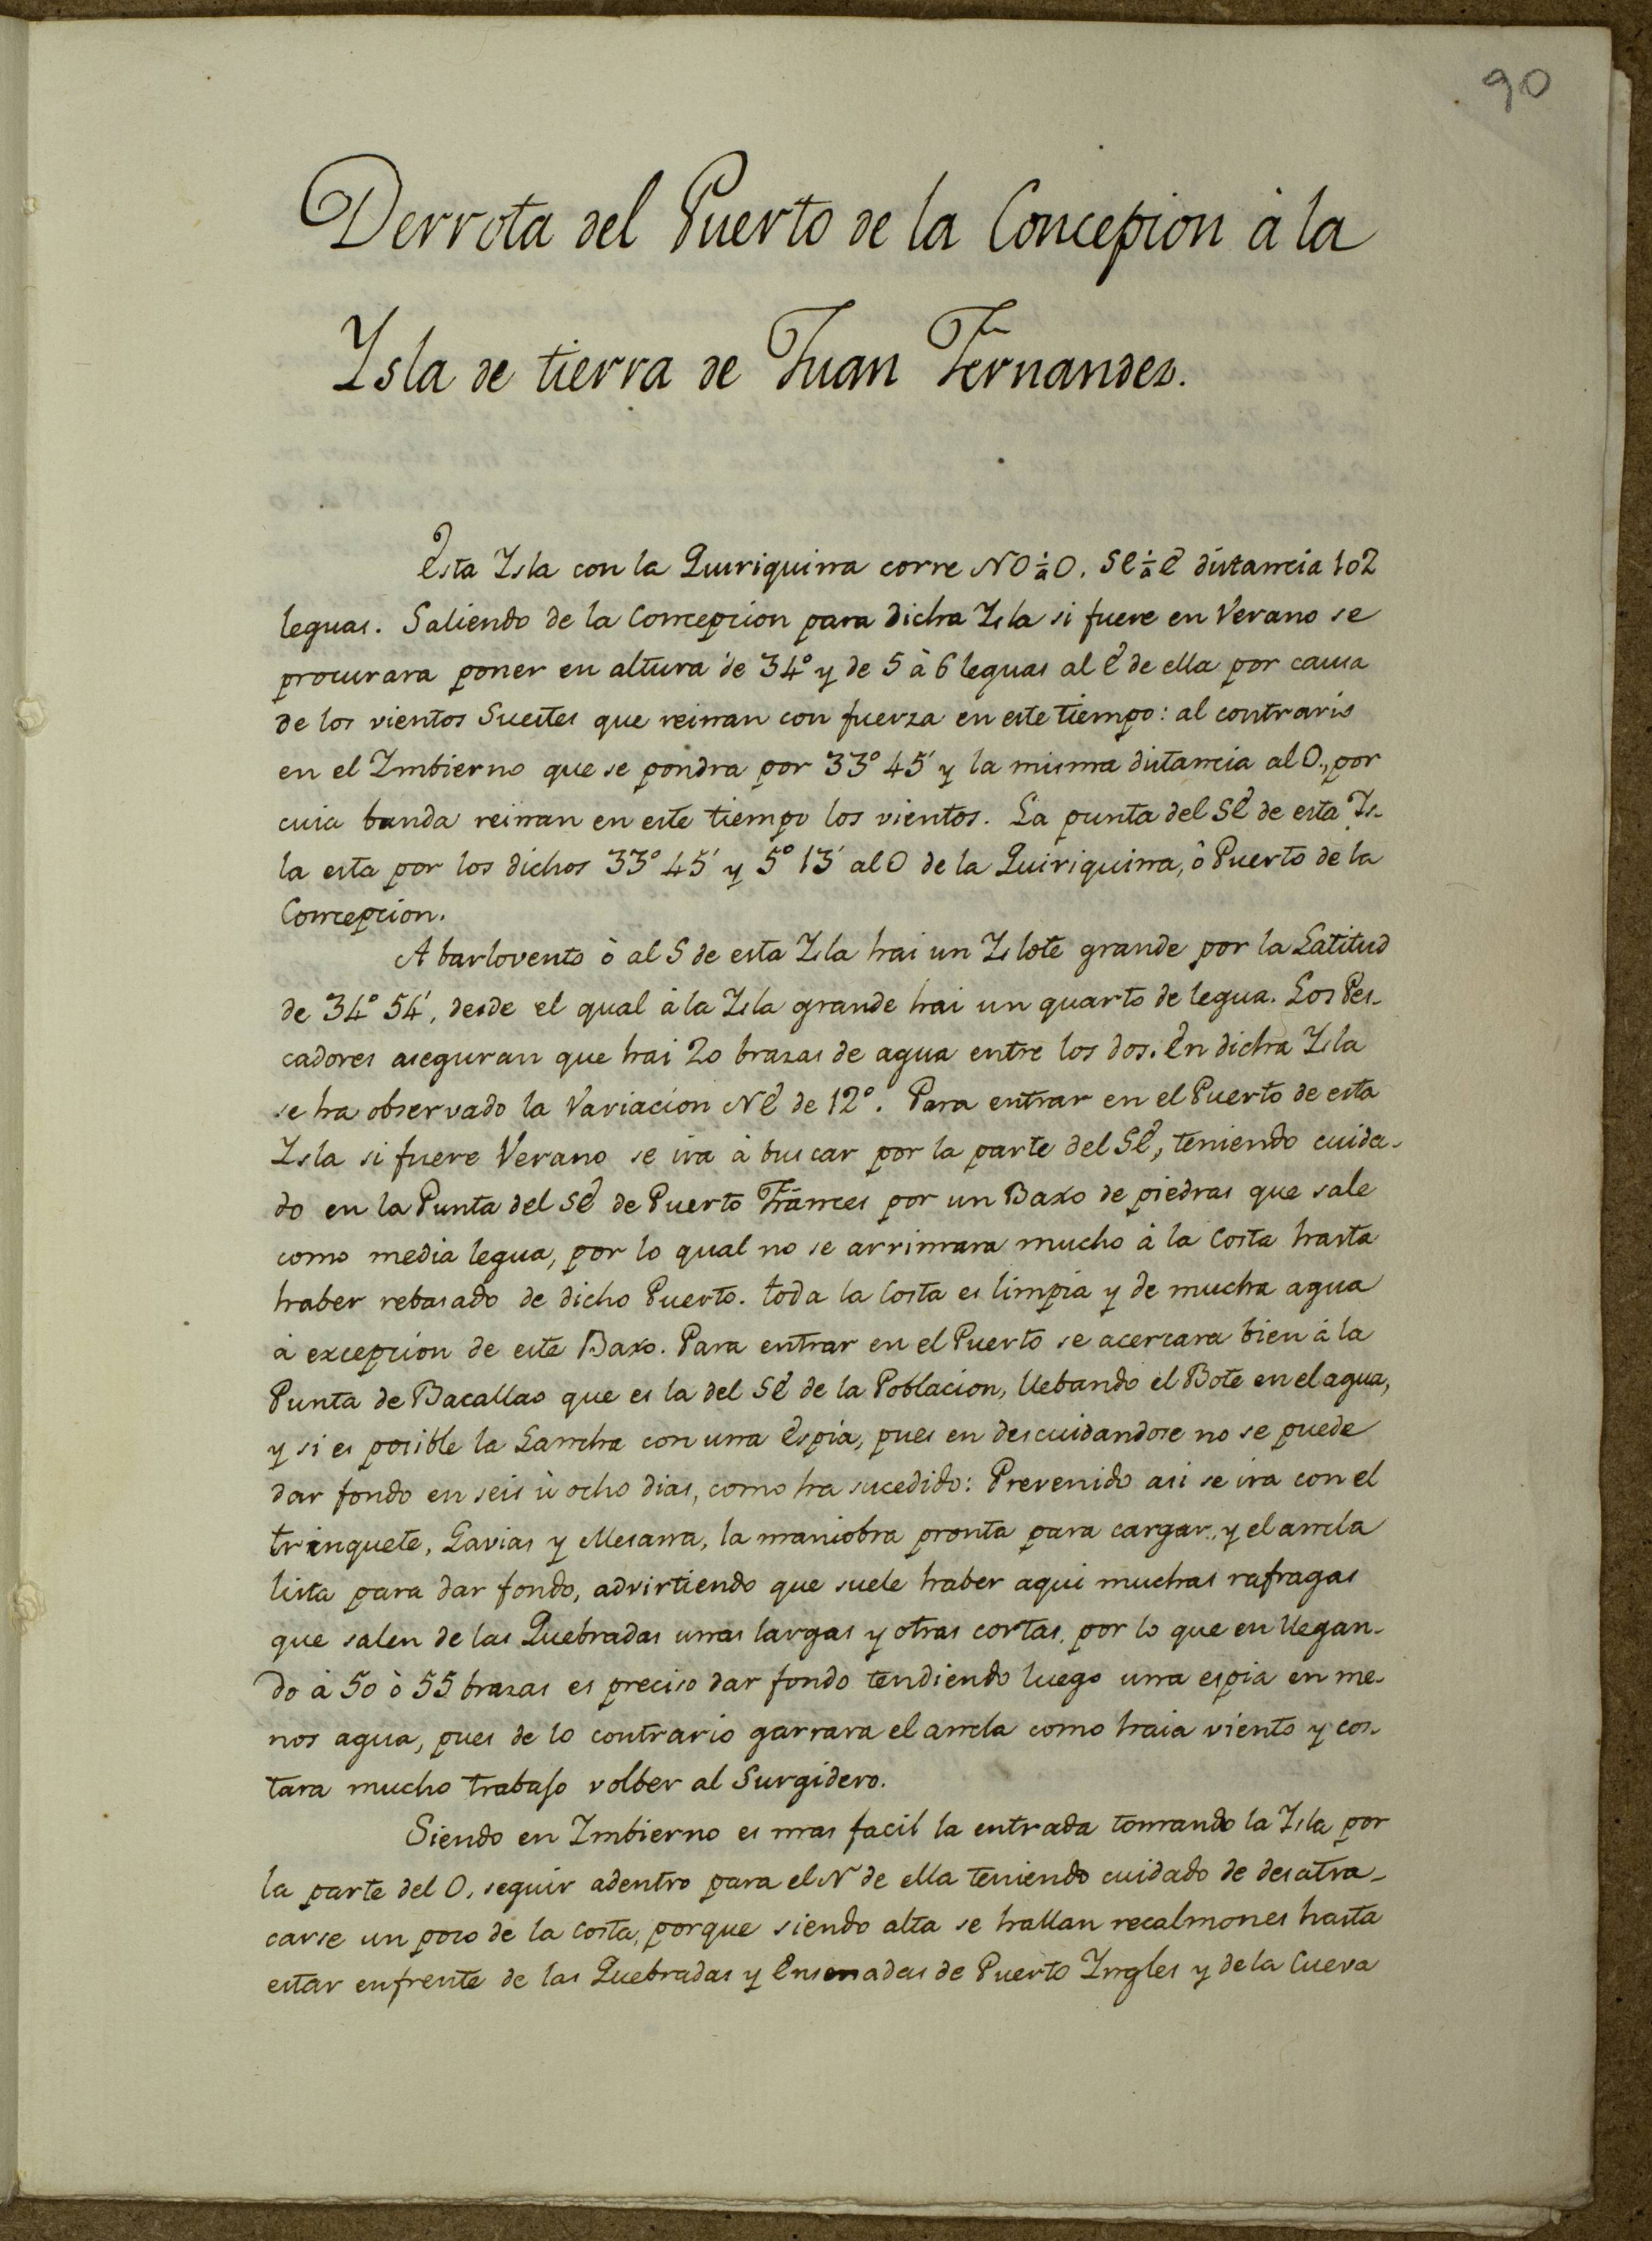 90
Derrota del Puerto de la Concepcion à la
Ysla de tierra de Juan Fernandez.
Esta Ysla con la Quiriquina corre NO¼O. SE¼E distancia 102
leguas. Saliendo de la Concepcion para dicha Ysla si fuere en Verano se
procurara poner en altura de 34° y de 5 à 6 leguas al E de ella por causa
de los vientos Suestes que reinan con fuerza en este tiempo: al contrario
en el Imbierno que se pondra por 33° 45' y la misma distancia al O., por
cuia banda reinan en este tiempo los vientos. La punta del SE de esta Ys-
la esta por los dichos 33° 45' y 5° 13' al O de la Quiriquina, ò Puerto de la
Concepcion.
A barlovento ò al S de esta Ysla hai un Yslote grande por la Latitud
de 34° 54', desde el qual à la Ysla grande hai un quarto de legua. Los Pes-
cadores aseguran que hai 20 brazas de agua entre los dos. En dicha Ysla
se ha observado la Variacion NE de 12°. Para entrar en el Puerto de esta
Ysla si fuere Verano se ira à buscar por la parte del SE, teniendo cuida-
do en la Punta del SE de Puerto Frances por un Baxo de piedras que sale
como media legua, por lo qual no se arrimara mucho à la Costa hasta
haber rebasado de dicho Puerto. toda la Costa es limpia y de mucha agua
à excepcion de este Baxo. Para entrar en el Puerto se acercara bien à la
Punta de Bacallao que es la del SE de la Poblacion, llebando el Bote en el agua,
y si es posible la Lancha con una Espia, pues en descuidandose no se puede
dar fondo en seis ù ocho dias, como ha sucedido: Prevenido asi se ira con el
trinquete, Gavias y Mesana, la maniobra pronta para cargar, y el ancla
lista para dar fondo, advirtiendo que suele haber aqui muchas rafragas
que salen de las Quebradas unas largas y otras cortas, por lo que en llegan-
do à 50 ò 55 brazas es preciso dar fondo tendiendo luego una espia en me-
nos agua, pues de lo contrario garrara el ancla como haia viento y cos-
tara mucho trabajo volber al Surgidero.
Siendo en Imbierno es mas facil la entrada tomando la Ysla por
la parte del O, seguir adentro para el N de ella teniendo cuidado de desatra-
carse un poco de la Costa, porque siendo alta se hallan recalmones hasta
estar enfrente de las Quebradas y Ensenadas de Puerto Ingles y de la Cueva